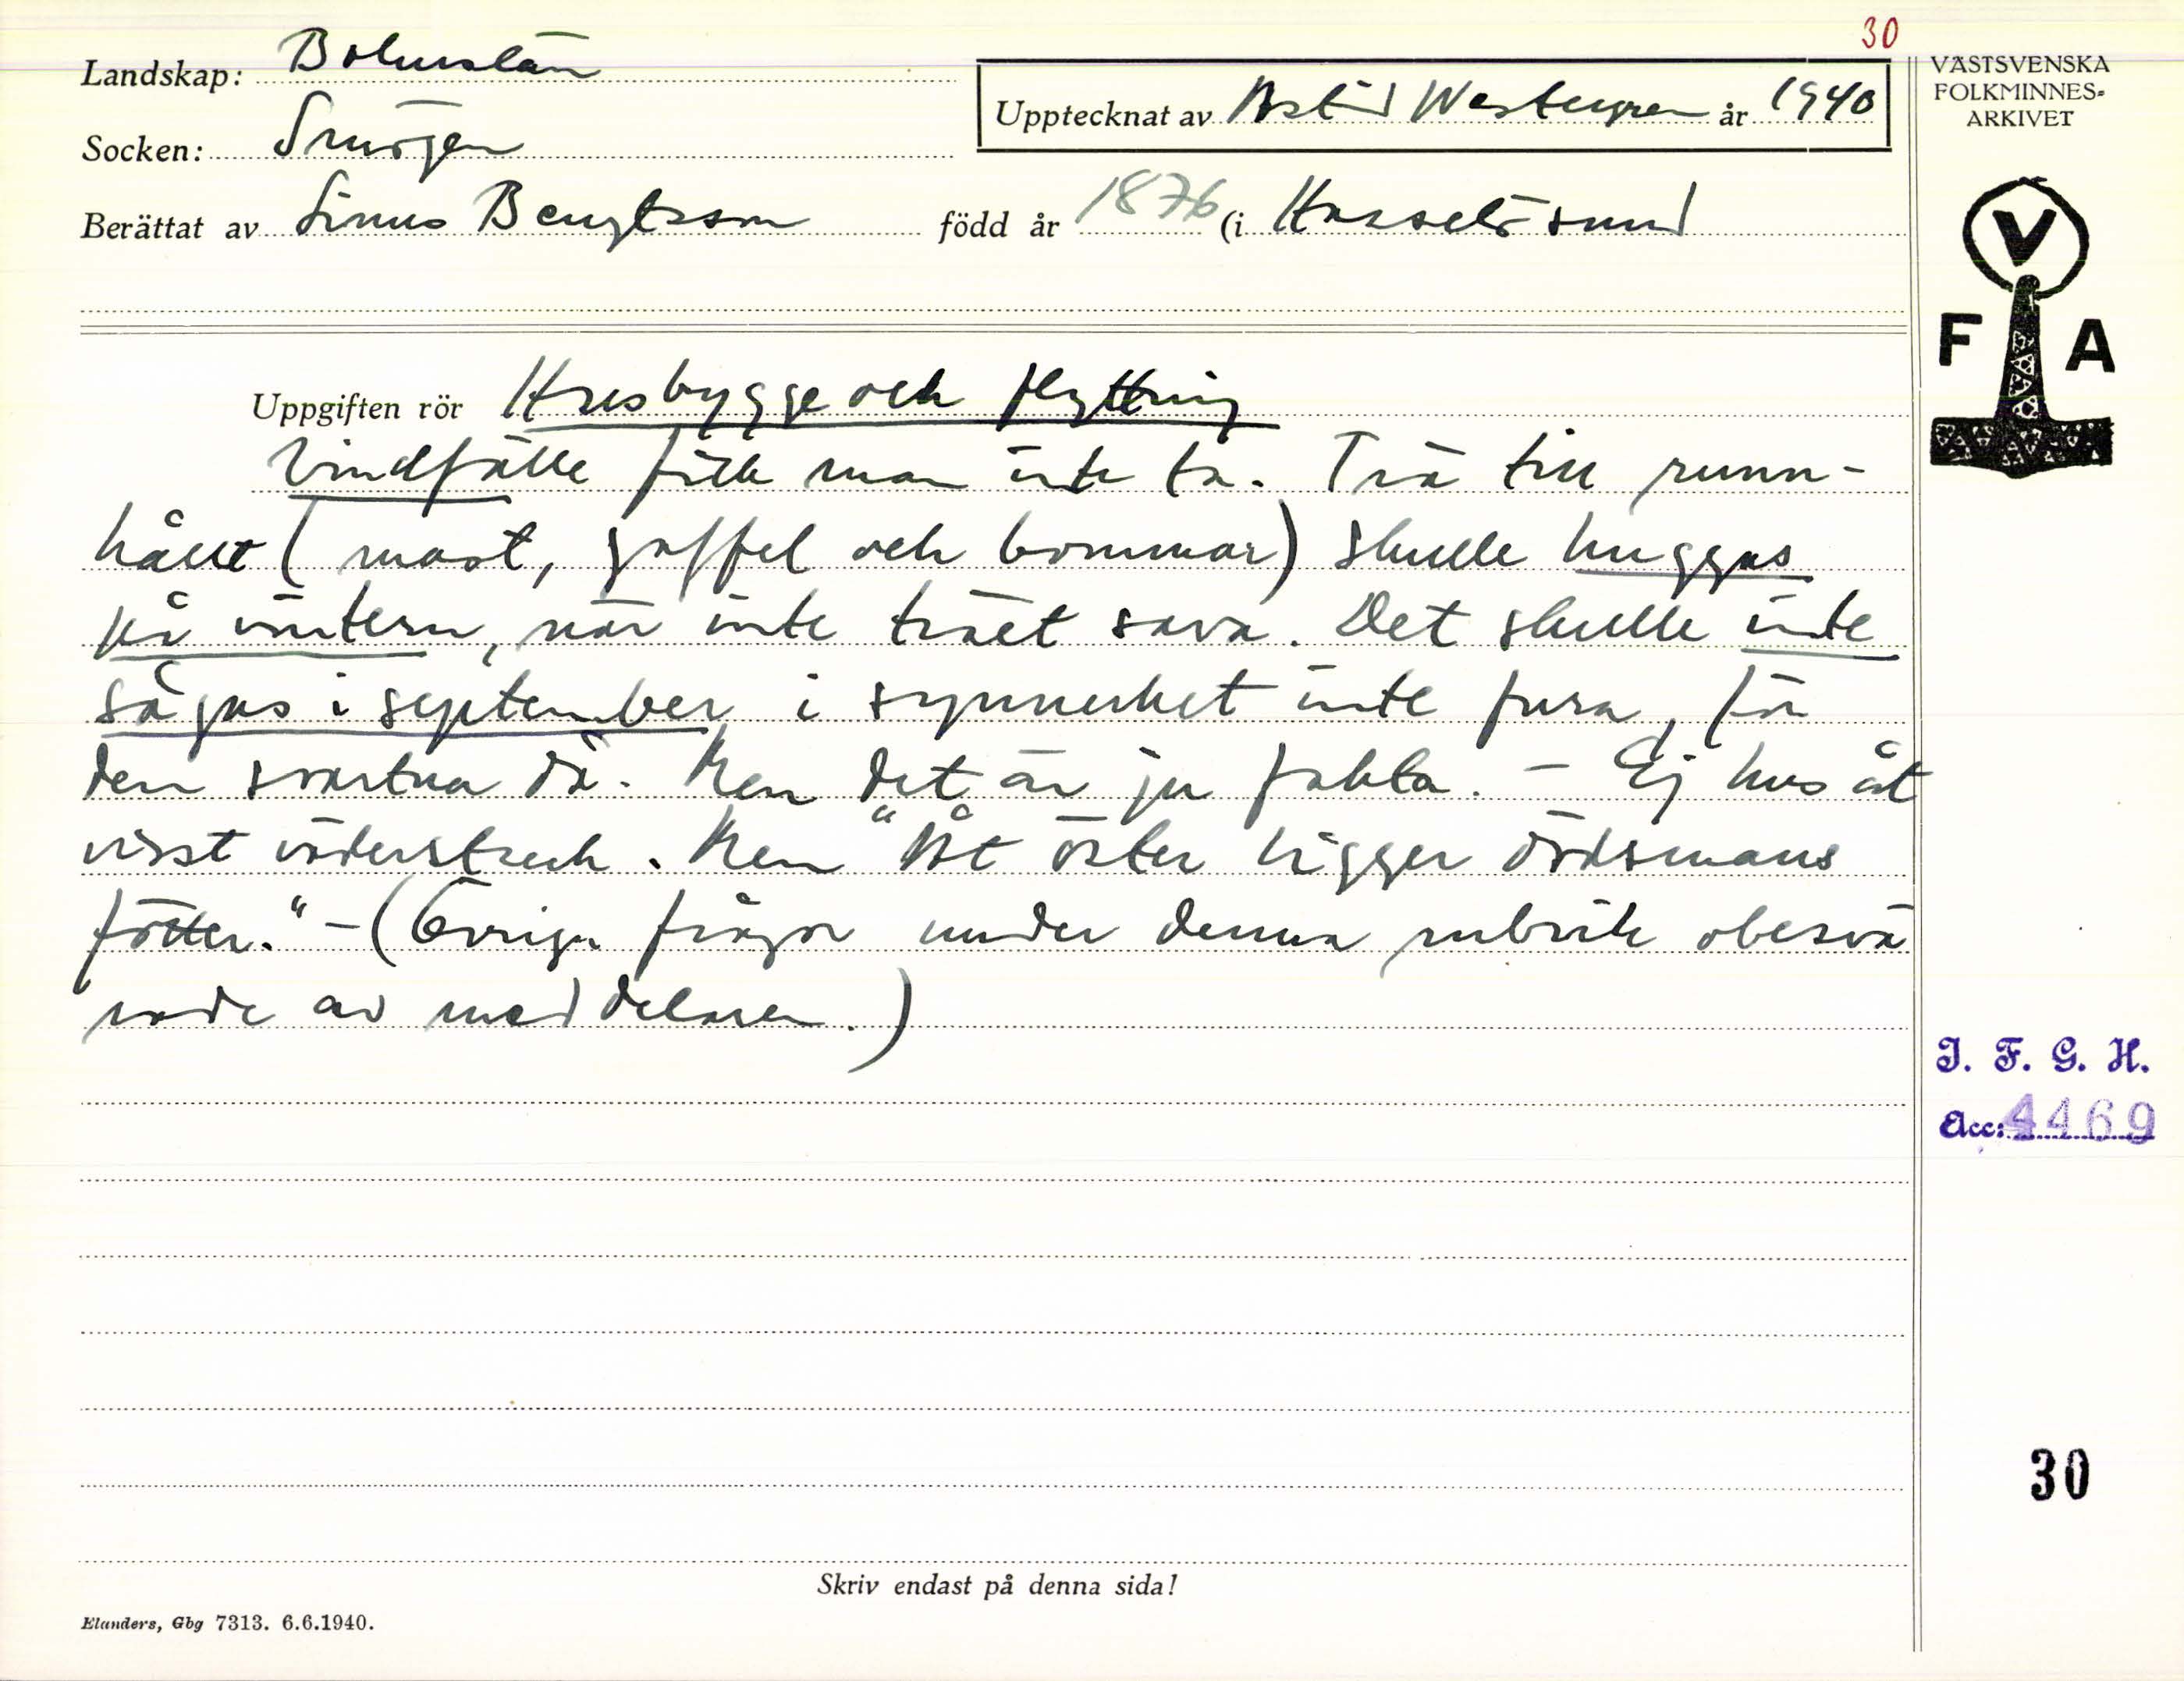 30
Landskap: Bohuslän
Socken: Smögen
Upptecknat av Astrid Westergren år 1940
Berättat av Linus Bengtsson född år 1876 (i Hasselösund
VÄSTSVENSKA
FOLKMINNES-
ARKIVET
V
F A
Uppgiften rör Husbygge och flyttning
Vindfälle fick man inte ta. Trä till runn-
hållt (mast, gaffel och bommar) skulle huggas
på vintern, när inte träet sava. Det skulle inte
sågas i september i synnerhet inte fura, för
den svartna då. Men det är ju fakta. – Ej hus åt
visst väderstreck. Men "Åt öster ligger dödsmans
fötter." – (Övriga frågor under denna rubrik obesva
rade av meddelaren.)
I. F. G. H.
Acc: 4469
30
Skriv endast på denna sida!
Elanders, Gbg 7313. 6.6.1940.